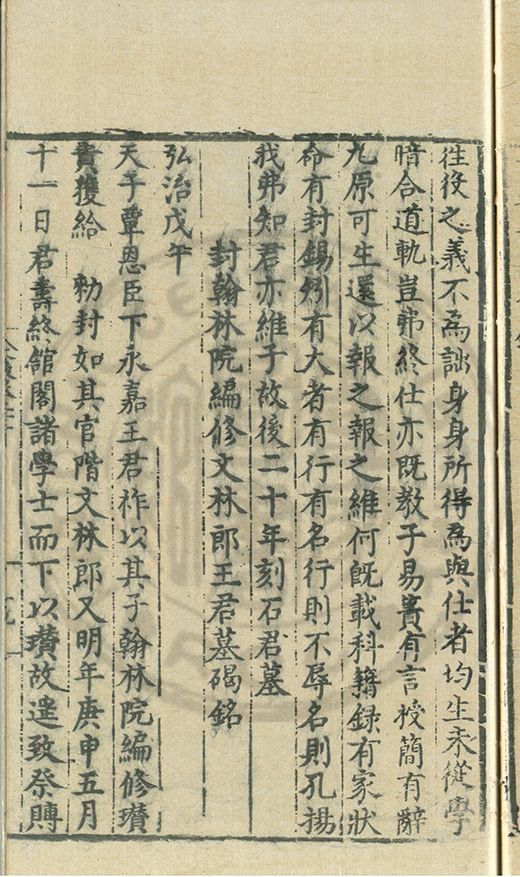 往役之義不為詘身身所得為與仕者均生未從學
暗合道軌豈弗終仕亦既教子易簀有言授簡有辭
九原可生還以報之報之維何既載科籍錄有家狀
命有封錫矧有大者有行有名行則不辱名則孔揚
我弗知君亦維子故後二十年刻石君墓
封翰林院編修文林郎王君墓碣銘
弘治戊午
天子覃恩臣下永嘉王君祚以其子翰林院編修瓚
貴獲給 勑封如其官階文林郎又明年庚申五月
十一日君壽終舘閣諸學士而下以瓚故遥致祭賻